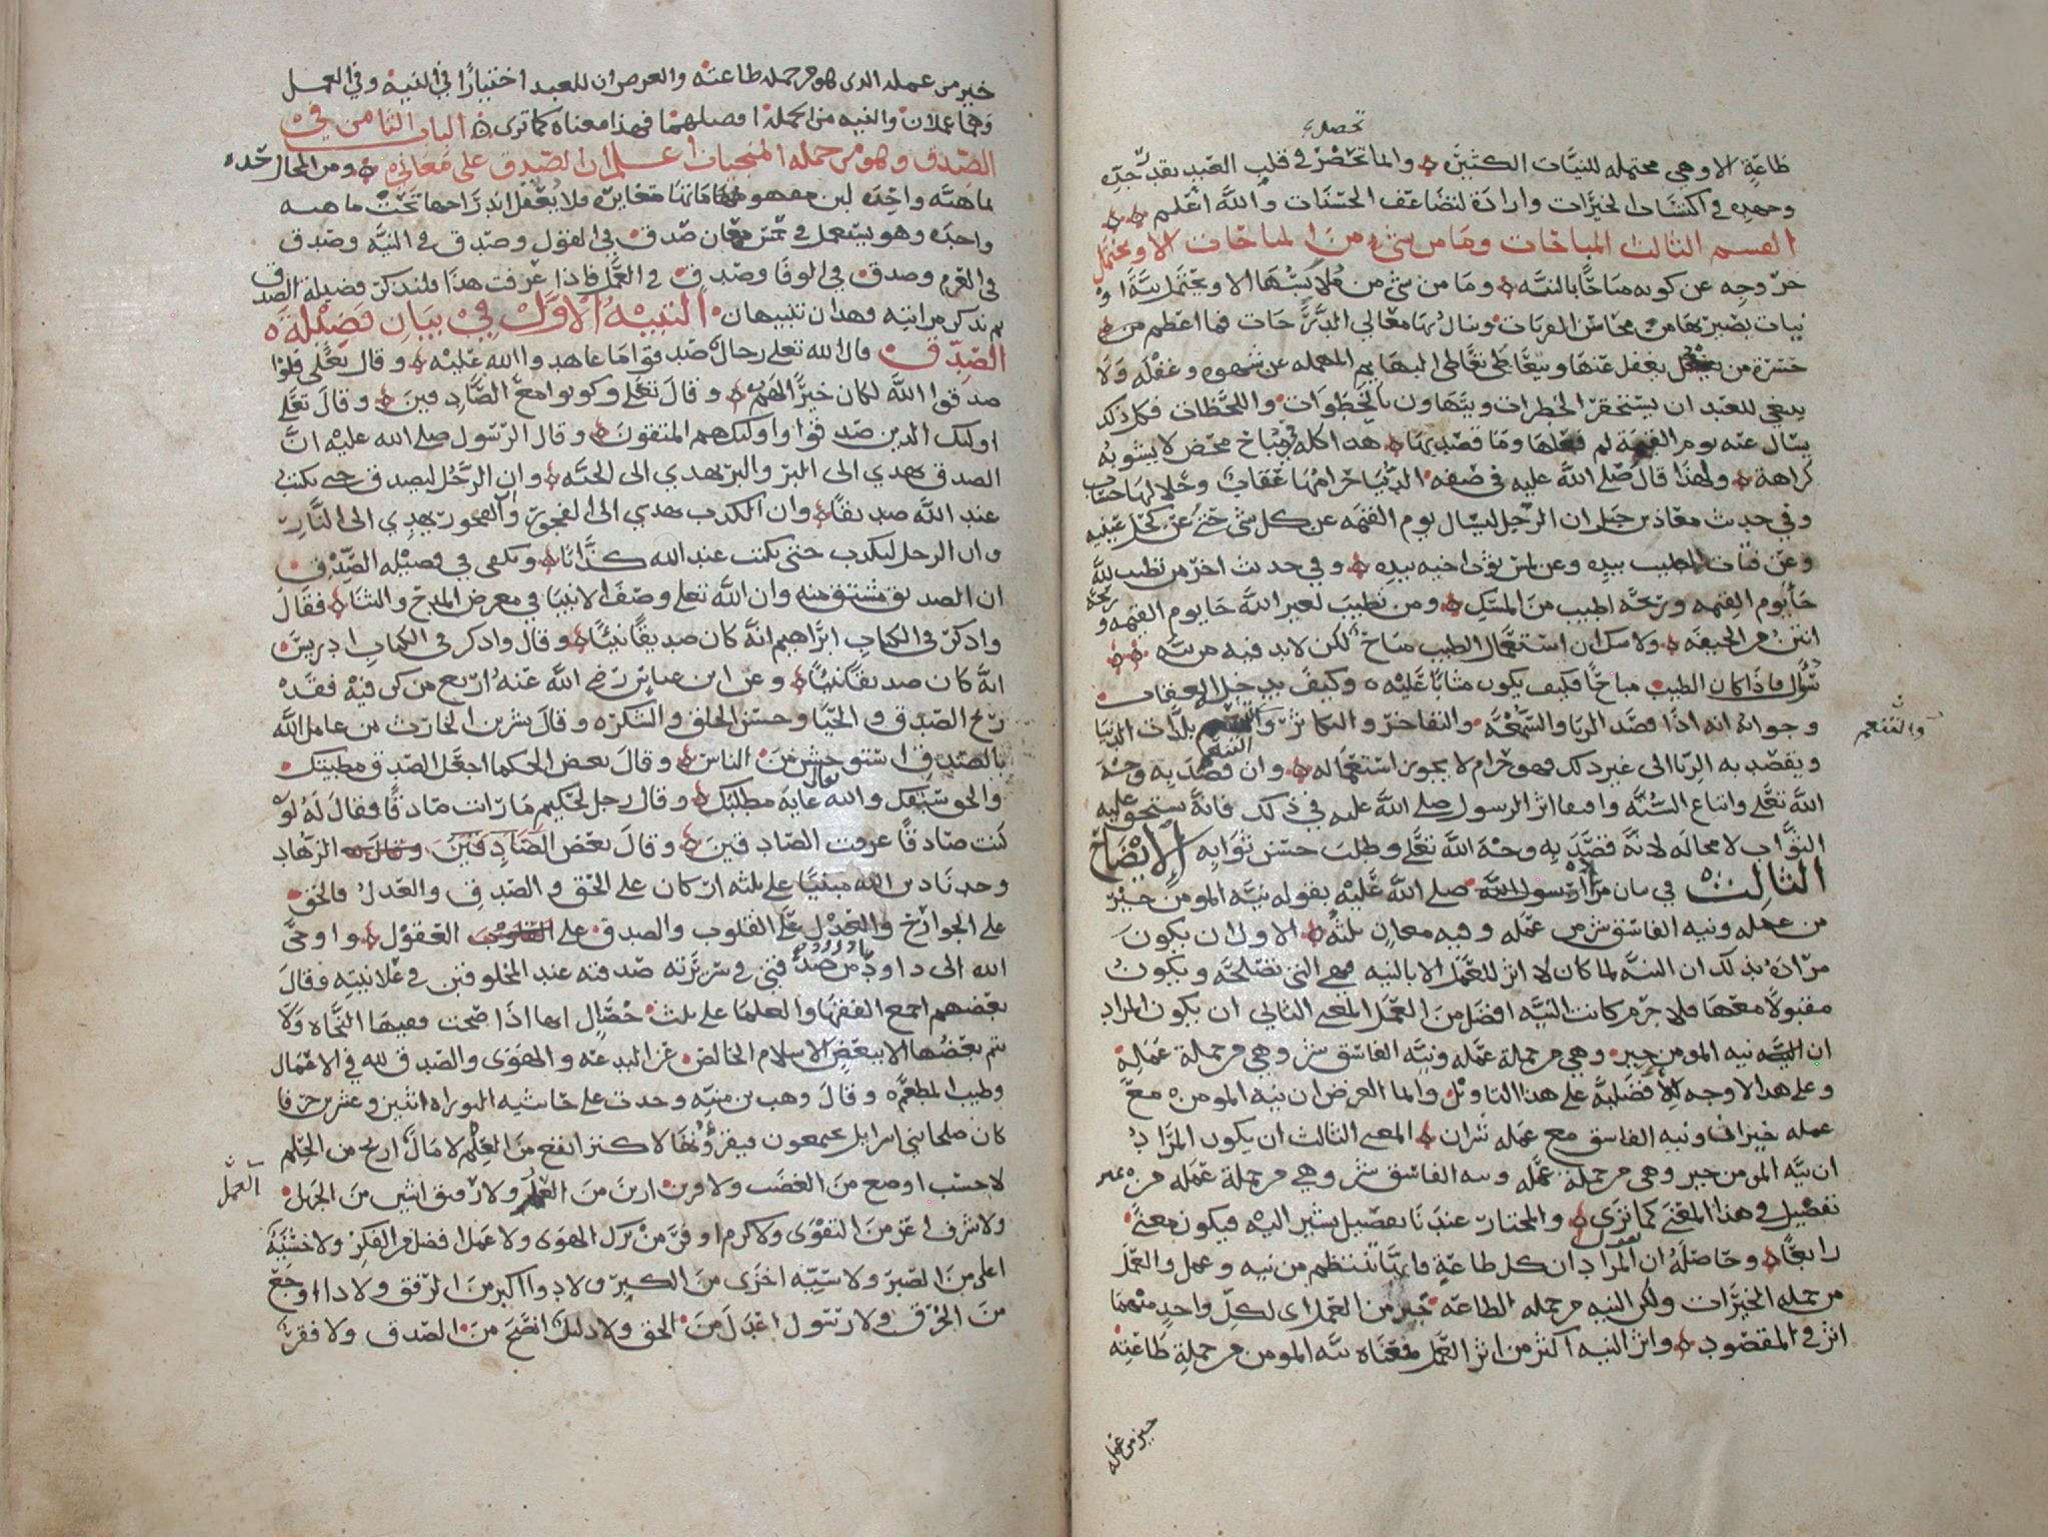 تحصل
طاعةٍ الا وهي محتمله للنيَّات الكثيرَه وانما تحضر في قلب العَبدِ بقدر جدِّه
وجهدِه في اكتسَاب الخيرَات وارادَة لتضاعف الحسَنَات واللهَ اعْلم
القسم الثالث المباحَات ومَا من شي من المباحَات الا ويحتمل
خرُوجِه عن كونه مبَاحًا بالنيَّه ومَا من شي من مُلابسَتها الا ويحتمل نيَّةً او
نيات يصير بها من محَاسن القربَات وينال بها معَالي الدَّرجَات فما اعظم من
خسْرَة من يغفل عنها ويتعَاطى تعَاطي البهَايم المهمله عن شهوه وغفْله وَلَا
ينبغي للعَبد ان يستحقرَ الخطرات ويتهَاون بالخطوَات واللحَظات فكل ذلك
يسَال عنه يوم القيمَة لم فعَلها ومَا قصَد بهَا هذا كله في مبَاح محض لا يشوبُه
كراهَة ولهذا قال صلى اللهَ عليه في صفه الدُّنيَا حرامُهَا عقابٌ وحَلالهَا حسَاب
وفي حديث معَاذ بن جبل ان الرجل ليسَال يوم القيمَه عن كل شي حتى عن كحل عينيه
وعن فتات الطيب بيده وعن لمس ثوب اخيه بيدِه وفي حديث اخر من تطيب لله
جَا يوم القيمه وريحَه اطيب منَ المسْكِ ومن تطيبَ لغير اللهَ جَا يوم القيمَه وريحَه
انتنُ من الجيفَه ولا شك ان استعمَال الطيب مبَاح لكن لابد فيه من نيَّه
سُؤال فاذا كان الطيب مباحًا فكيف يكون مثابًا عَلَيْه وكيف يدخل العقاب
وجوابه انه اذا قصَد الريا والسُّمعَه والتفاخر والتكاثر بلذَّات الدنيَا
والتَّنَعم
ويقصد به الريا الى غير ذلك فهو حَرام لا يجوز استعمَاله وان قصَد به وجْهَ
اللهَ تعَلى واتباع السُّنَّه واقتفا اثر الرسول صلى اللهَ عليه في ذلك فانهُ يستحق عليه
الثوَاب لا محاله لانَّه قصَدَ به وجْهَ اللهَ تعَلى وطلبَ حسْن ثوَابِهِ الإيضاح
الثالث في بيان مرَاد رَسول اللهَ صلى اللهَ عَليْه بقوله نيَّه المومن خيْر
من عمله ونيه الفاسق شر من عمَله وفيه معان ثلثه الاول ان يكونَ
مرَادهُ بذلك ان النيَّه لما كان لا اثر للعَمل الا بالنيه فهي التي تصْلحَه ويكونُ
مقبولًا معَهَا فلا جرم كانت النيَّه افضل منَ العمَل المعنى الثاني ان يكون المراد
ان نيه المومن خير وهي من جملة عمَله ونيَّه الفاسق شر وهي من جملة عَمَلهِ
وعلى هذا لا وجه للأفضَليَّه على هذا التاويل وانما الغرض ان نيه المومن معَ
عمله خيرَان ونيه الفاسق مع عمَله شران المعنى الثالث ان يكون المرَاد
ان نيَّه المومن خير وهي من جملة عمَله ونيه الفاسق شر وهي من جملة عَمَله من غير
تفصيل في هذا المعْنى كما ترَى والمختار عندنَا تفصيل يشير اليْه فيكون معنىً
رابعًا وحَاصلهُ ان المراد ان كل طاعَةٍ فانَّها تنتظم من نيه وعمل والعمَل
من جمله الخيرَات ولكن النيه من جمله الطاعَه خير من العمل اي لكلِّ واحدٍ منهما
اثر في المقصُود واثر النيه اكثر من اثر العَمل فمعْنَاه نيَّه المومن من جملةِ طَاعتِه
خير من عمله
خير من عمله الذي هو من جمله طاعته والغرض ان للعبد اختيارًا في النيه وفي العمل
وهما عملان والنيه من الجمله افضلهما فهذا معناه كما ترى الباب الثامن في
الصّدق وهو من جمله المنجيات اعلم ان الصّدق على معانيه ومن المحال حَدّه
بماهيَّه واحِده لان مفهوماتهَا متغايرَه فلا يُعْقل اندِرَاجها تحْت ماهيه
واحدَه وهو يسْتعمل في خمس معَان صدق في القول وصدق في النيَّه وصدق
في العزم وصدق في الوفا وصدق في العَمل فاذا عرَفت هذا فلنذكر فضيلة الصدق
ثم نذكر مراتبه فهذان تنبيهان التنبيهُ الأوَّل في بيَانِ فضيْله
الصِّدق قال الله تعلى رجالٌ صَدقوا مَا عاهدوا الله عَليْه وقال تعَلى فلوْ
صدقوا اللهَ لكان خيرًا لهم وقالَ تعَلى وكونوا معَ الصَّادقينَ وقالَ تعَلى
اولئك الذين صَدقوا واولئك هم المتقونَ وقال الرّسُول صلى الله عليْه انَّ
الصدق يهدي الى البرّ والبرّ يهدي الى الجنَّه وان الرَّجُل ليصدق حتى يكتب
عند اللهَ صديقًا وان الكذب يهدي الى الفجورِ والفجورَ يهدِي الى النَّارِ
وان الرجل ليكذب حتى يكتب عند الله كذَّابًا ويكفي في فضيْله الصِّدْق
ان الصديق مشتق منه وان اللهَ تعلى وصَفَ الانبيا في معرض المدْح والثنَا فقالَ
واذكرْ في الكتابِ ابرَاهيم انَّه كان صديقًا نبيًّا وقال واذكر في الكتابِ ادريسَ
انَّه كان صديقًا نبيًّا وعن ابن عباس رضي اللهَ عَنهُ اربَع من كن فيْه فقدْ
ربحَ الصّدق والحَيَا وحسْن الخلق والشكر وقالَ بشر بن الحارث من عامل اللهَ
بالصّدقِ استوحشَ منَ الناس وقالَ بعض الحكما اجعَل الصّدق مطيتك
والحق سَيْفك والله غايَه مطلبَك وقال رجل لحكيم مَا رَات صَادقًا فقالَ لهُ لوْ
كنت صَادقًا عرفت الصّادقينَ وقالَ بعض الصّادقينَ الزهَّاد
وجدنا دين الله مبنيًّا على ثلثه ارْكان على الحقِّ والصّدقِ والعَدلِ فالحق
على الجوارحِ والعَدْل عَلَى القلوب والصدق على العقوْل واوحَى
الله الى داودُ من صَدقني في سرِيرَته صدقته عند المخلوقين في عَلانيتِه وقالَ
بعْضهم اجمع الفقهَا والعلمَا على ثلث خصَال انها اذا صَحت ففيهَا النّجَاه ولَا
يتم بعْضُها الا ببَعْضٍ الاسلام الخالصُ عن البدعَه والهَوَى والصّدق لله في الاعْمَال
وطيب المطعَم وقالَ وهب بن منبّه وجدت على حاشيه التوراه اثنين وعشرين حرفا
كان صلحا بني اسرايل يجتمعون فيقرؤُنهَا لا كنز انفع منَ العِلْم لا مَالَ اربح من الحِلم
لا حسَب اوضع منَ الغضَب ولا قرين ازينَ منَ ولا رَفيق اشين منَ الجَهل
العَمل
ولا شرف اعَزّ منَ التقوَى ولا كرم اوفر منْ ترك الهوَى ولا عمَل افضل من الفِكْرِ ولا حَسَنَة
اعلى منَ الصّبر ولا سَيّئه اخزَى منَ الكبر ولا دوا اكبر منَ الرّفق ولا داء اوجَعَ
منَ الخرْق ولا رَسُول اعْدَل منَ الحق ولا دليل انصَح منَ الصّدق ولا فقر